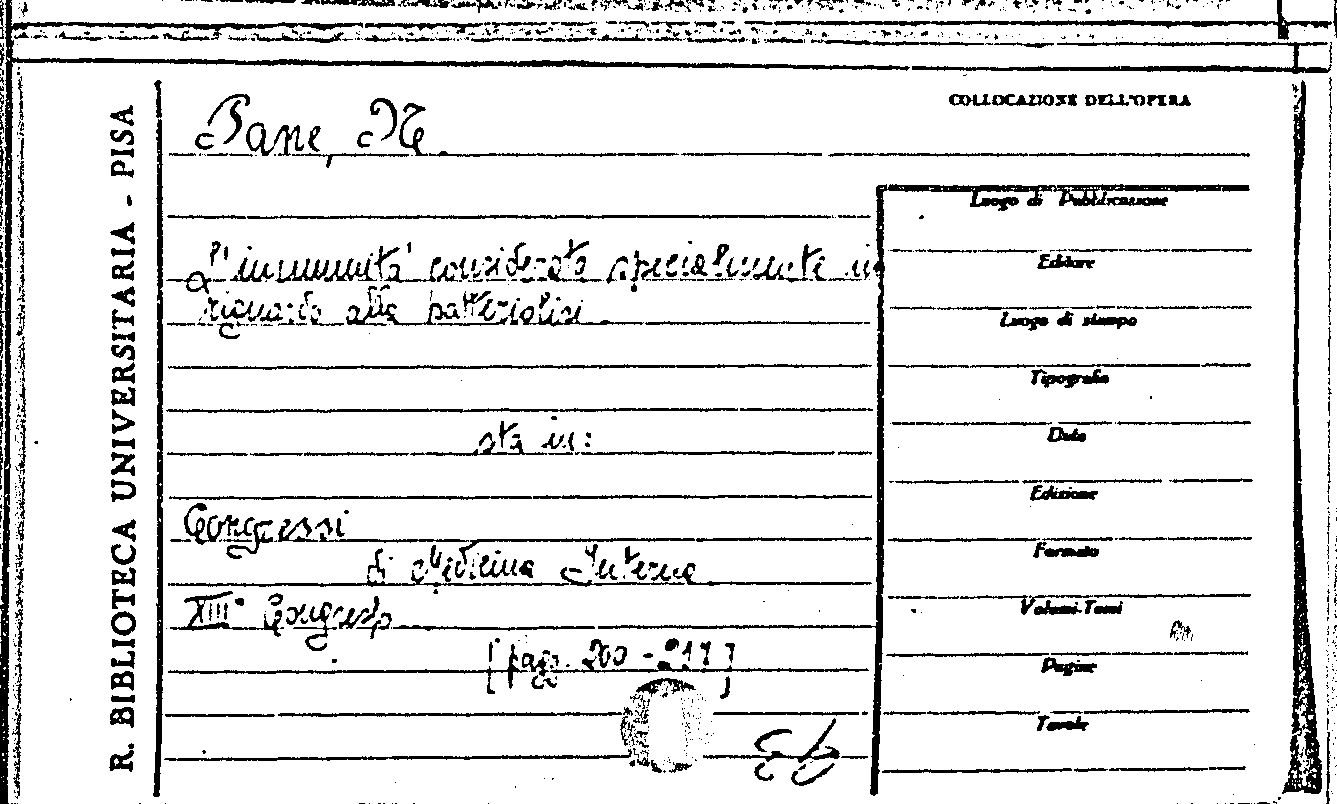 R. BIBLIOTECA UNIVERSITARIA - PISA
COLLOCAZIONE DELL'OPERA
Pane, N.
L'immunità considerata specialmente in
riguardo alla batteriolisi.
sta in:
Congressi
di Medicina Interna
XIII° Congresso
[pag. 200 - 217]
Luogo di Pubblicazione
Editore
Luogo di stampo
Tipografia
Data
Edizione
Formato
Volumi-Tomi
Pagine
Tavole